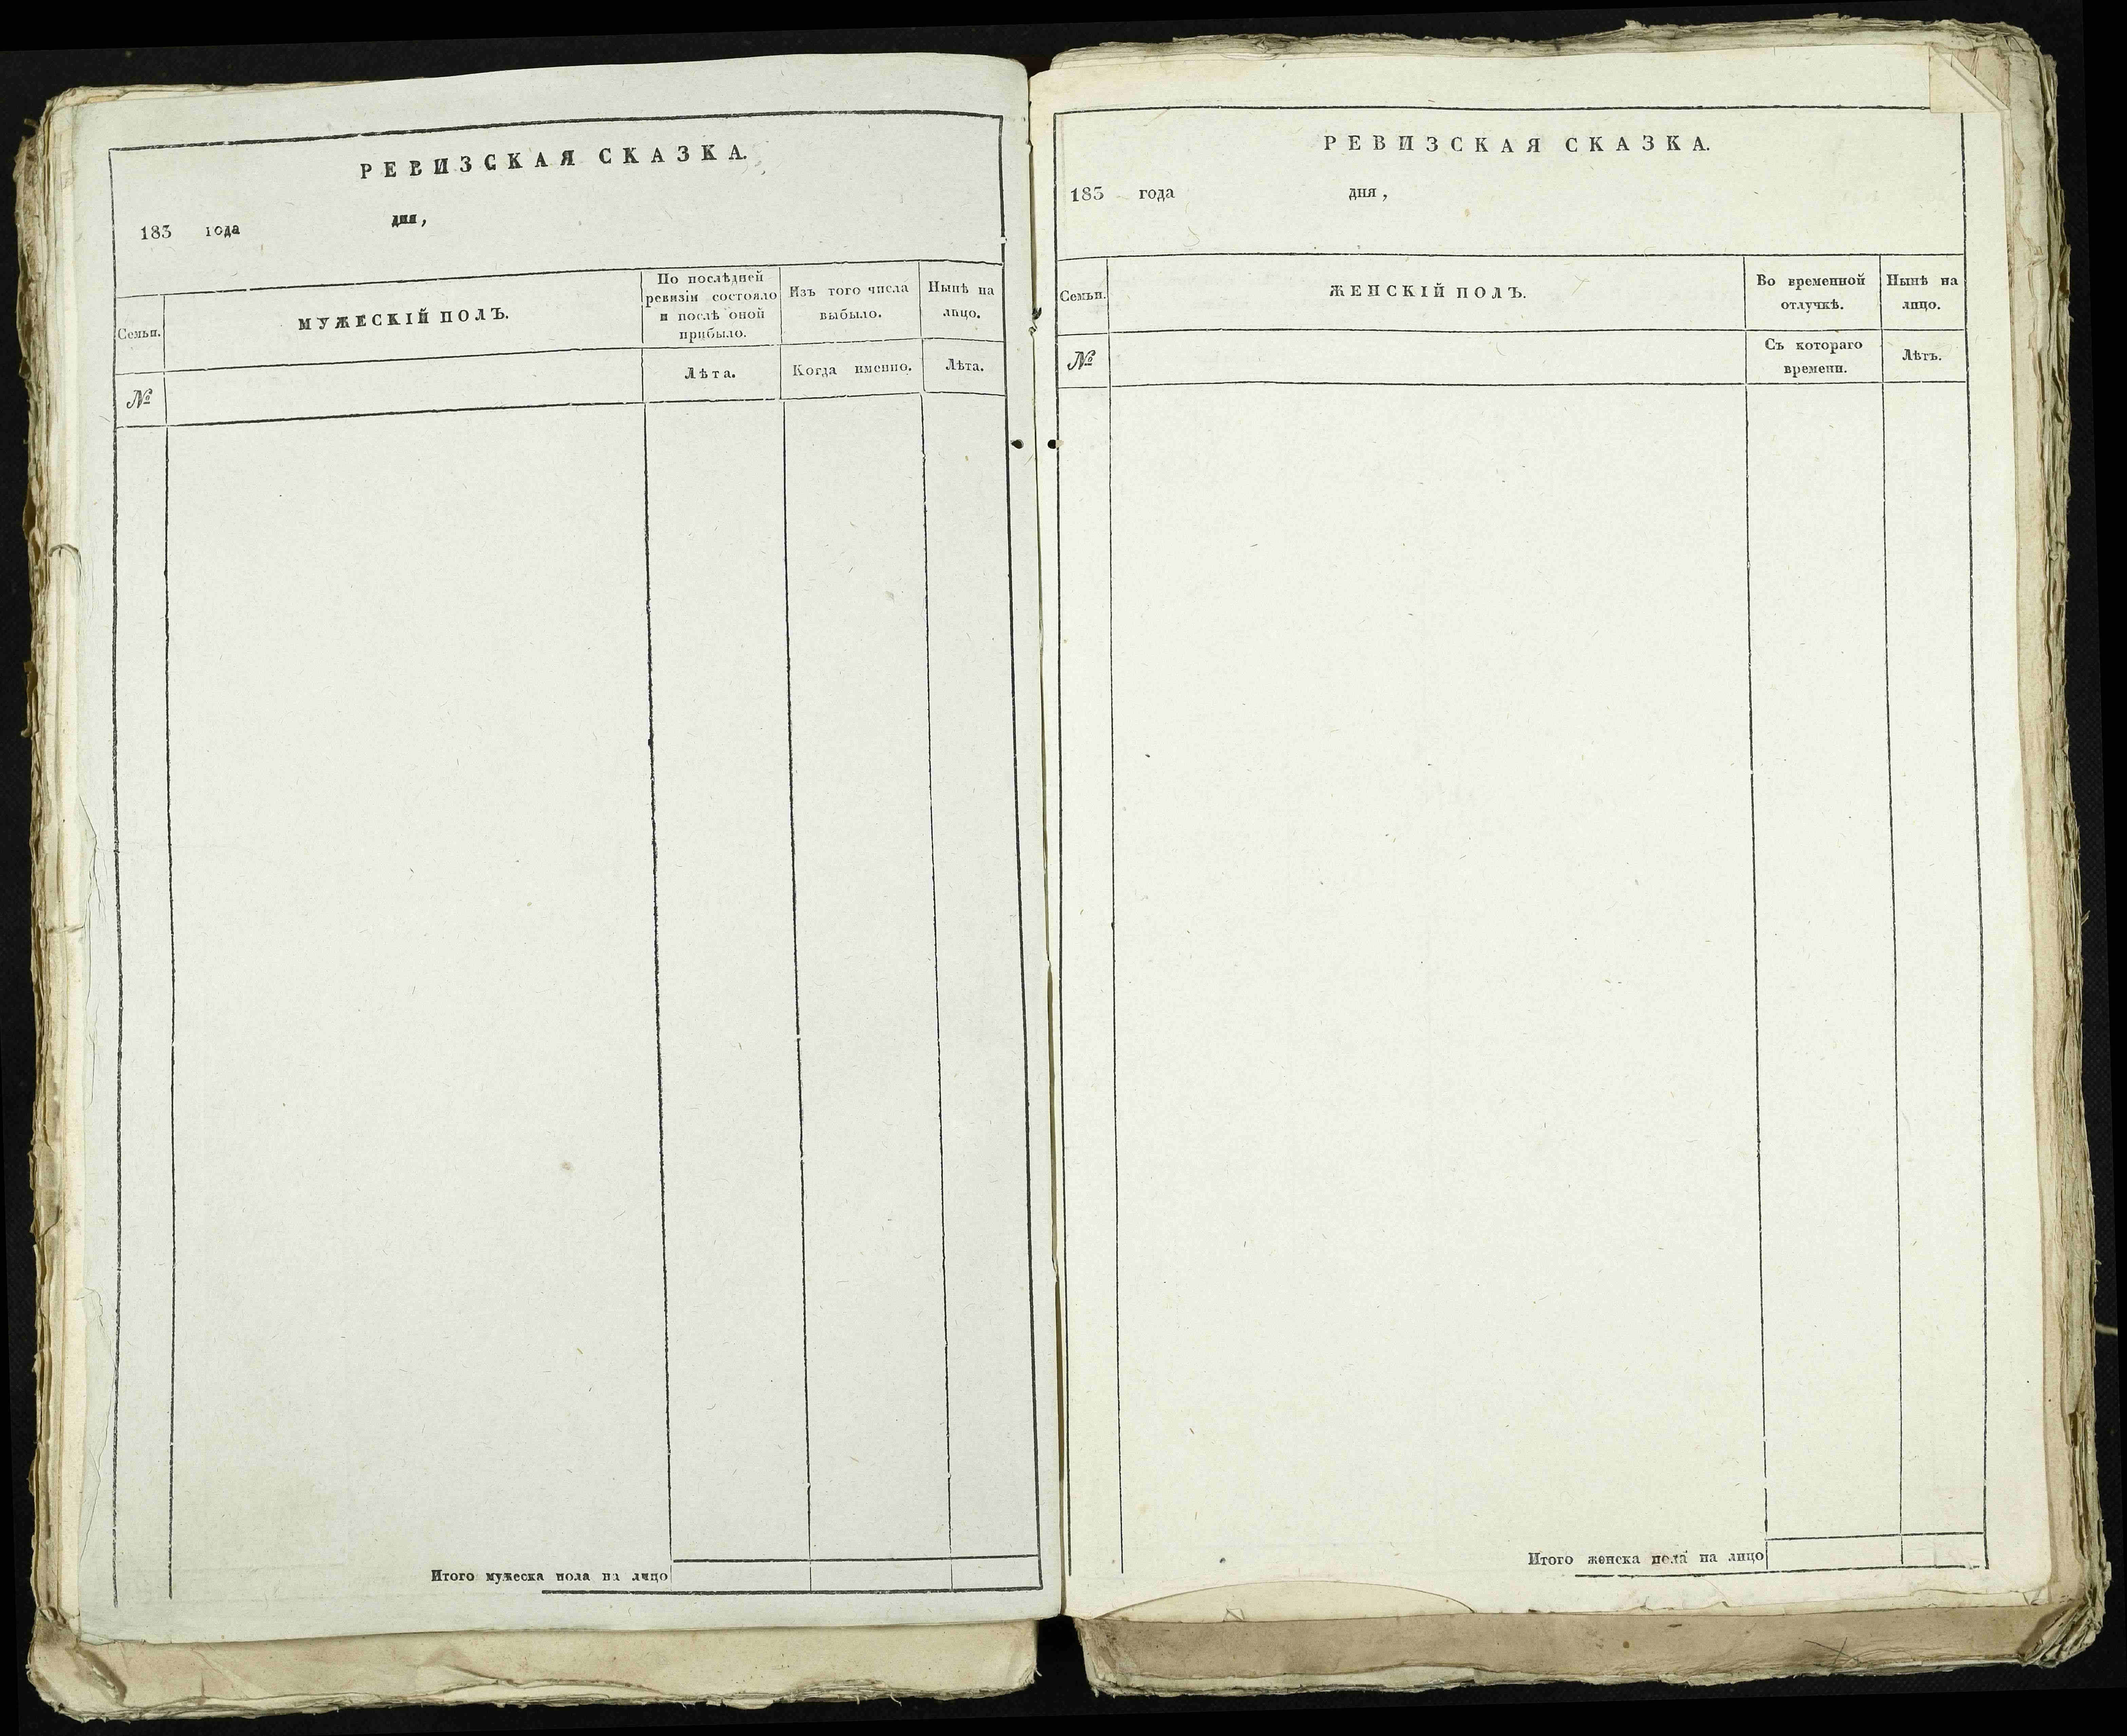 РЕВИЗСКАЯ СКАЗКА.
183 года дня,
Семьи.
МУЖЕСКІЙ ПОЛЪ.
По послѣдней
ревизіи состояло
и послѣ оной
прибыло.
Изъ того числа
выбыло.
Нынѣ на
лицо.
№
Лѣта.
Когда именно.
Лѣта.
Итого мужеска пола на лицо
РЕВИЗСКАЯ СКАЗКА.
183 года дня,
Семьи.
ЖЕНСКІЙ ПОЛЪ.
Во временной
отлучкѣ.
Нынѣ на
лицо.
№
Съ котораго
времени.
Лѣтъ.
Итого женска пола на лицо